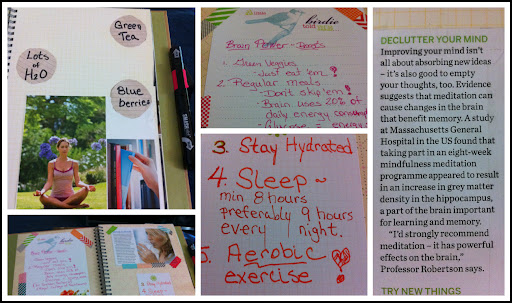 Green
Tea
Lots
of
H2O
Blue
berries
birdie
Brain Power - Boosts
1. Green Veggies
- Just eat 'em!
2. Regular meals
- Don't skip 'em!
- Brain uses 20% of
daily energy
Glucose = energy
3. Stay Hydrated
4. Sleep ~
min 8 hours
preferably 9 hours
every night.
5. Aerobic
exercise!
DECLUTTER YOUR MIND
Improving your mind isn't
all about absorbing new ideas
– it's also good to empty
your thoughts, too. Evidence
suggests that meditation can
cause changes in the brain
that benefit memory. A study
at Massachusetts General
Hospital in the US found that
taking part in an eight-week
mindfulness meditation
programme appeared to result
in an increase in grey matter
density in the hippocampus,
a part of the brain important
for learning and memory.
"I'd strongly recommend
meditation – it has powerful
effects on the brain,"
Professor Robertson says.
TRY NEW THINGS